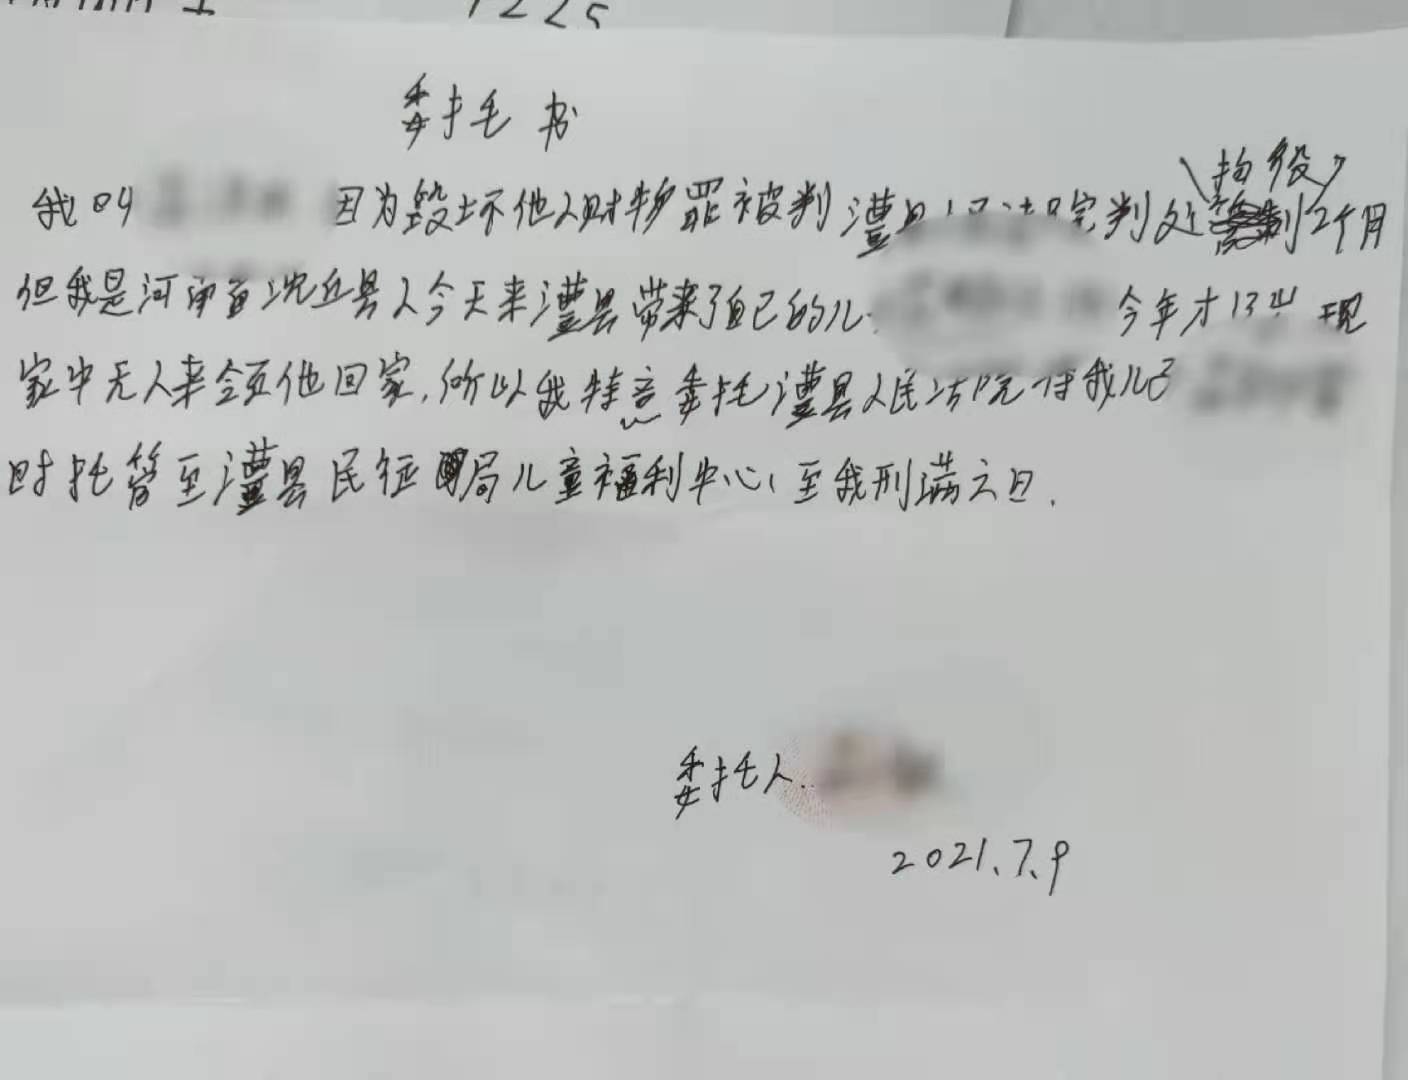 1225
委托书
我叫 因为毁坏他人财物罪被判澧县人民法院判处拘役2个月
但我是河南省沈丘县人今天来澧县带来了自己的儿 今年才13岁 现
家中无人来领他回家,所以我特意委托澧县人民法院将我儿子
时托管至澧县民征局儿童福利中心,至我刑满之日.
委托人
2021.7.9